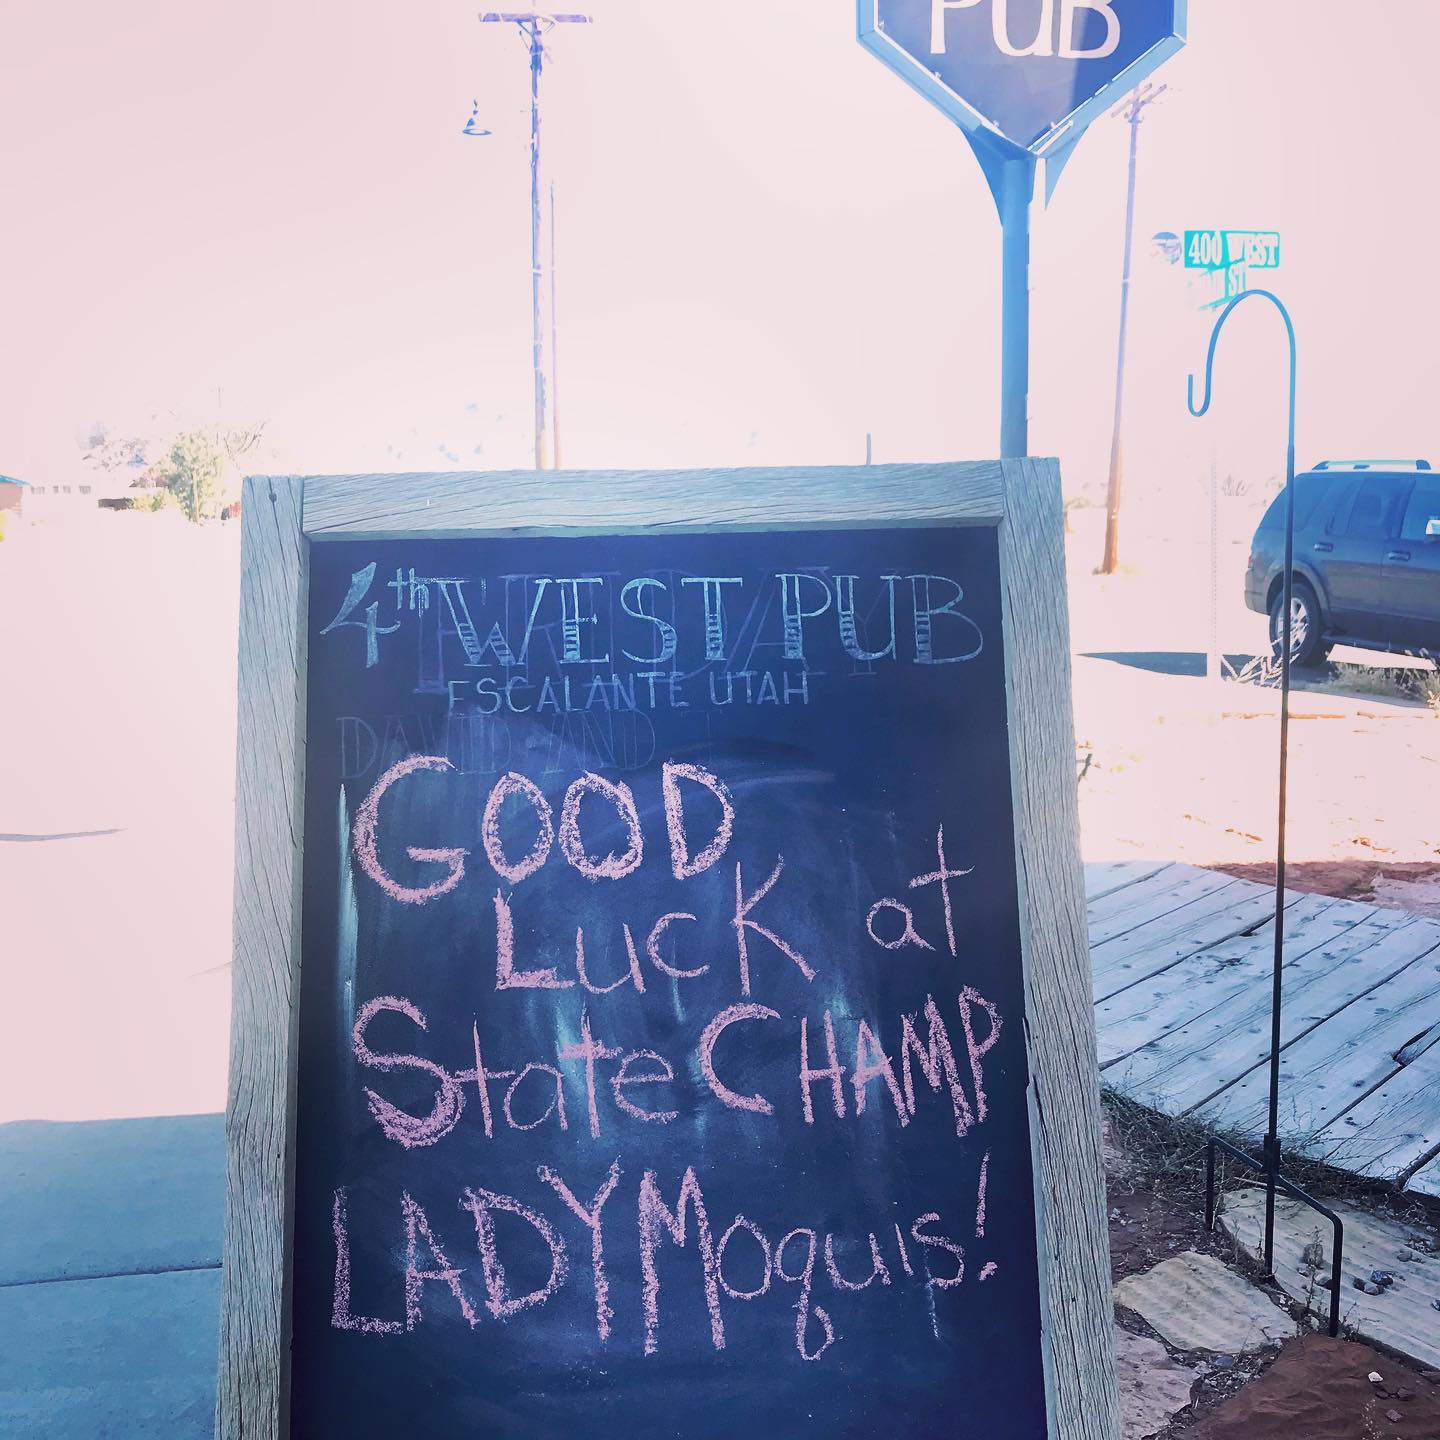 PUB
400 WEST
ST
4th WEST PUB
FRIDAY
ESCALANTE UTAH
DAVID AND
GOOD
Luck at
State CHAMP
LADY Moquis!